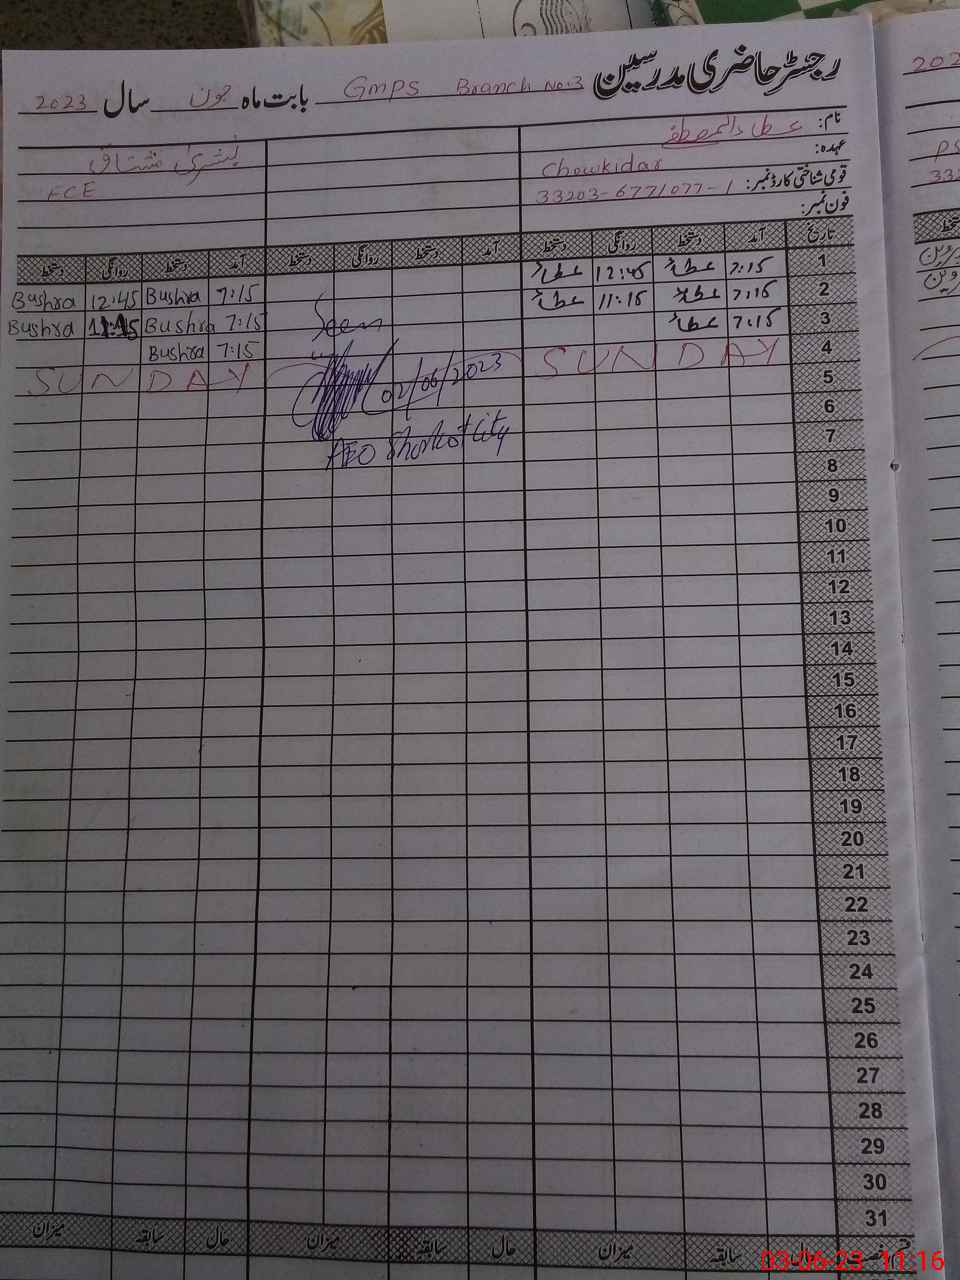 رجسٹر حاضری مدرسین GMPS Branch No.3 بابت ماہ جون سال 2023
نام: عطاء المصطفےٰ
بشریٰ مشتاق
عہدہ: Chowkidar
ECE
قومی شناختی کارڈ نمبر: 33203-6771077-1
فون نمبر:
تاریخ آمد دستخط روانگی دستخط آمد دستخط روانگی دستخط آمد دستخط روانگی دستخط
1 7:15 عطاء 12:45 عطاء 7:15 Bushra 12:45 Bushra
2 7:15 عطاء 11:15 عطاء Seen 7:15 Bushra 11:15 Bushra
3 7:15 عطاء 7:15 Bushra
4 SUNDAY 02/06/2023 SUNDAY
5
6
AEO Shorkot City
7
8
9
10
11
12
13
14
15
16
17
18
19
20
21
22
23
24
25
26
27
28
29
30
31
حال سابقہ میزان حال سابقہ میزان حال سابقہ میزان
03-06-23 11:16
202
PS
332